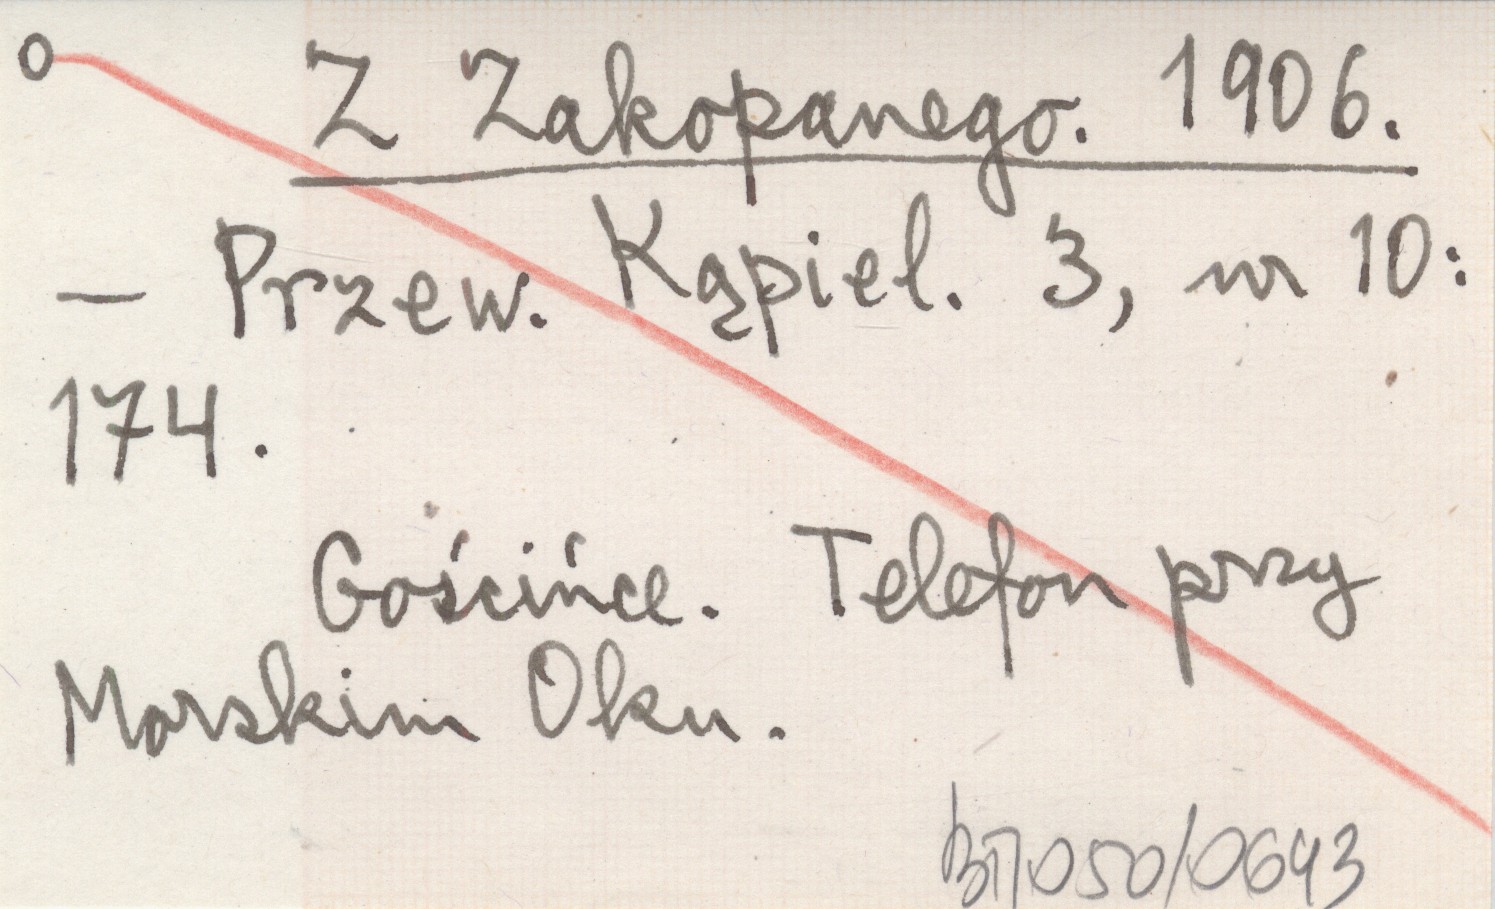 o Z Zakopanego. 1906.
— Przew. Kąpiel. 3, nr 10:
174.
Gościńce. Telefon przy
Morskim Oku.
050/0643